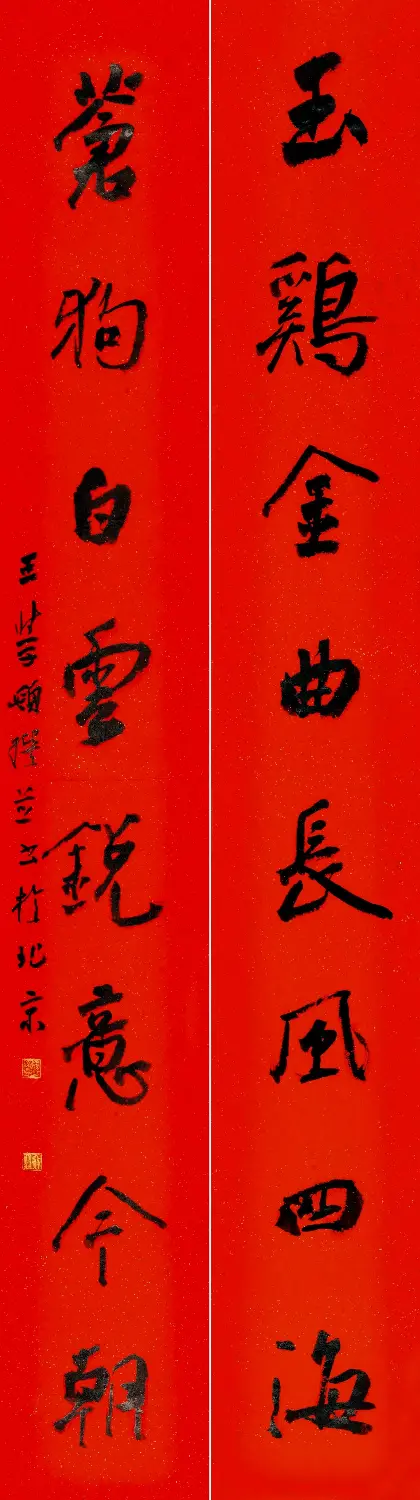 玉鷄金曲長風四海
蒼狗白雲銳意今朝
王學嶺撰並书於北京